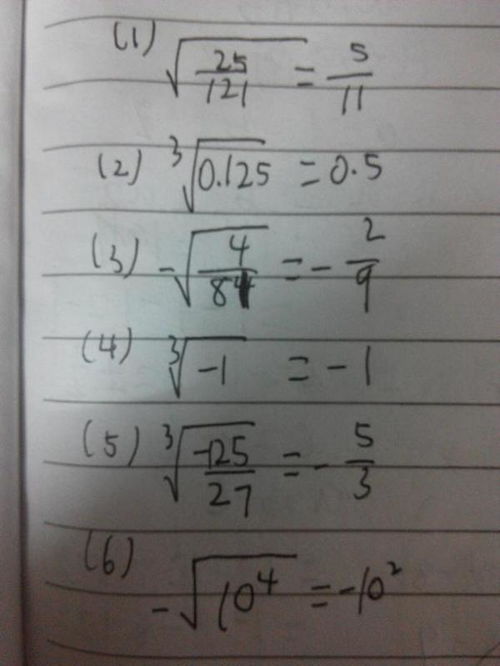 (1) √(25/121) = 5/11
(2) ³√(0.125) = 0.5
(3) -√(4/81) = -2/9
(4) ³√(-1) = -1
(5) ³√(-125/27) = -5/3
(6) -√(10⁴) = -10²